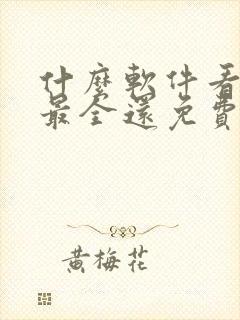 什麼軟件看
最全還免費
黃梅花